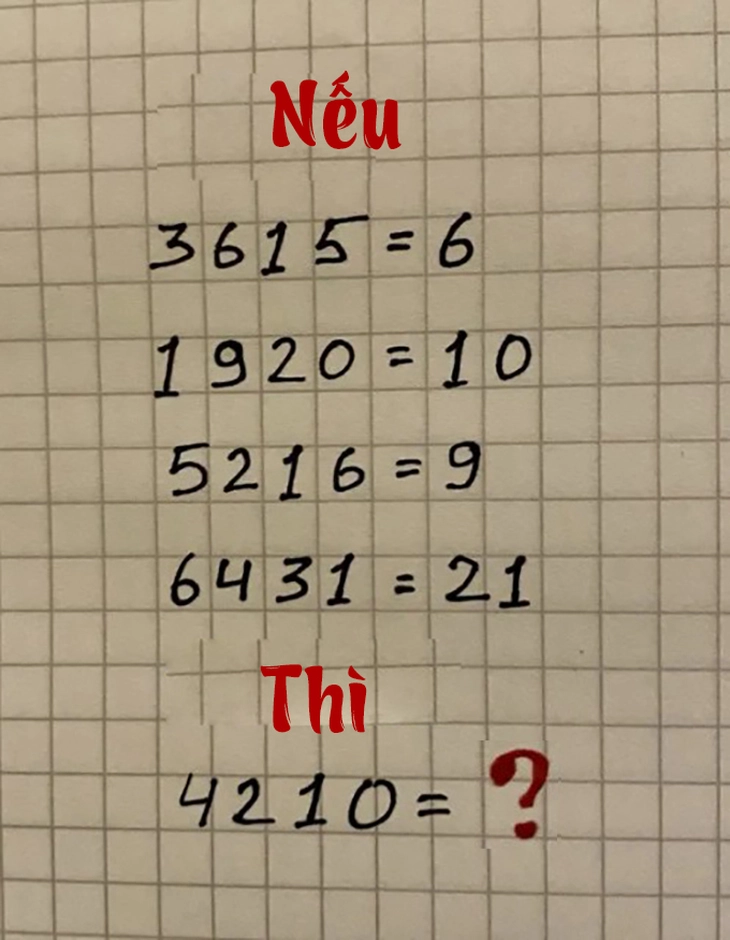 Nếu
3615 = 6
1920 = 10
5216 = 9
6431 = 21
Thì
4210 = ?